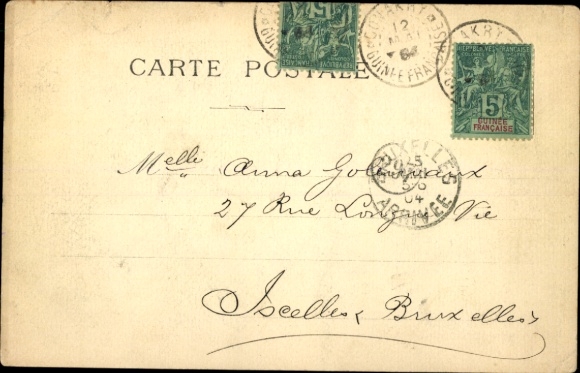 CONAKRY
12
04
GUINÉE FRANÇAISE
5
CARTE POSTALE
REPUBLIQUE FRANÇAISE
COLONIES
5
GUINÉE
FRANÇAISE
BRUXELLES
5
04
ARRIVÉE
Melle Anna
27 Rue Vie
Ixcelles Bruxelles